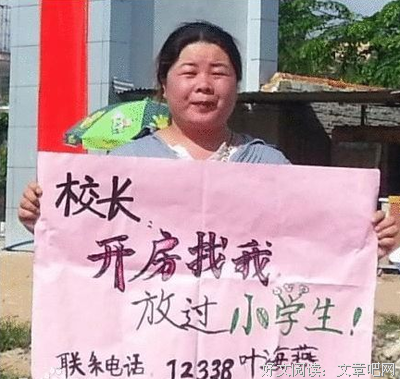 校长
开房找我
放过小学生！
联系电话 12338 叶海燕
好文阅读：文章吧网